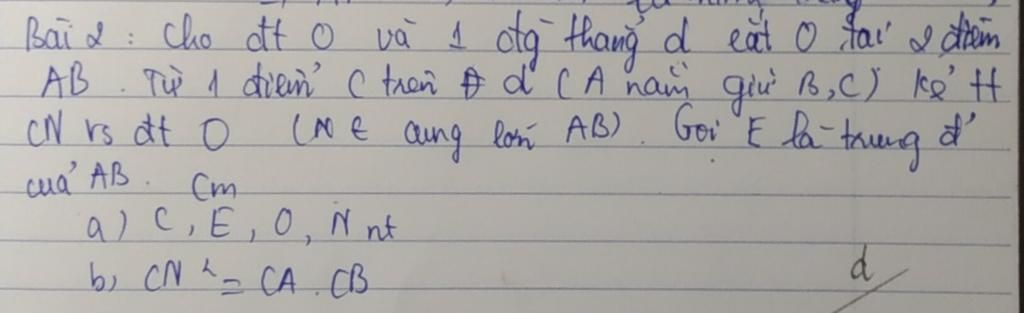 Bài 2 : Cho đt O và 1 đtg thẳng d cắt O tại 2 điểm
AB . Từ 1 điểm C trên d ( A nằm giữ B, C ) kẻ tt
CN vs đt O ( N ∈ cung lớn AB ) . Gọi E là trung đ'
của AB . Cm
a) C , E , O , N nt
b, CN ² = CA . CB
d